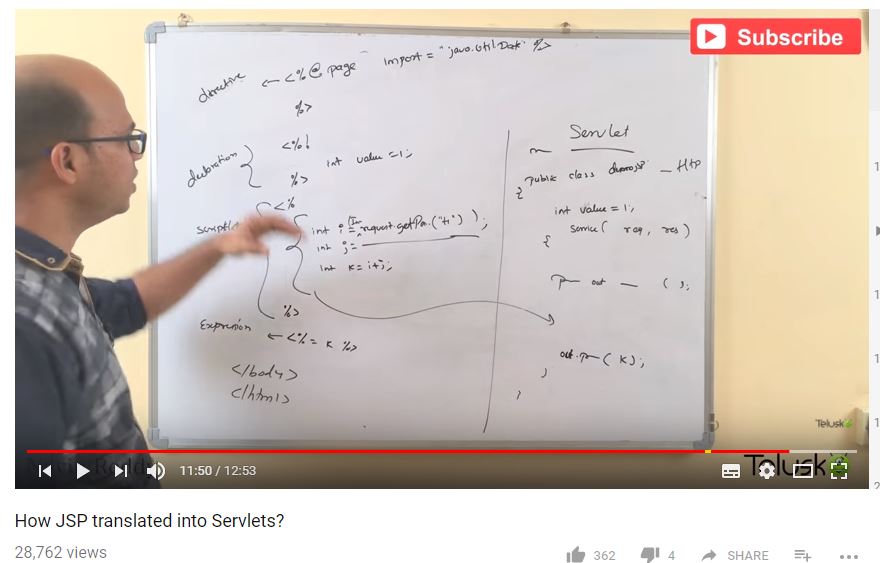 Subscribe
directive ← <%@ page import = "java.util.Date" %>
%>
declaration
<%!
int value =1;
%>
<%
int i = request.getPa.("t1") );
int j =
int k = i+j;
%>
Expression ← <%= k %>
</body>
</html>
Servlet
public class demojsp — Http
{
int value = 1;
service( req, res)
{
out — ( );
out.p—( k);
}
}
Telusk
Telusk
11:50 / 12:53
How JSP translated into Servlets?
28,762 views
362
4
SHARE